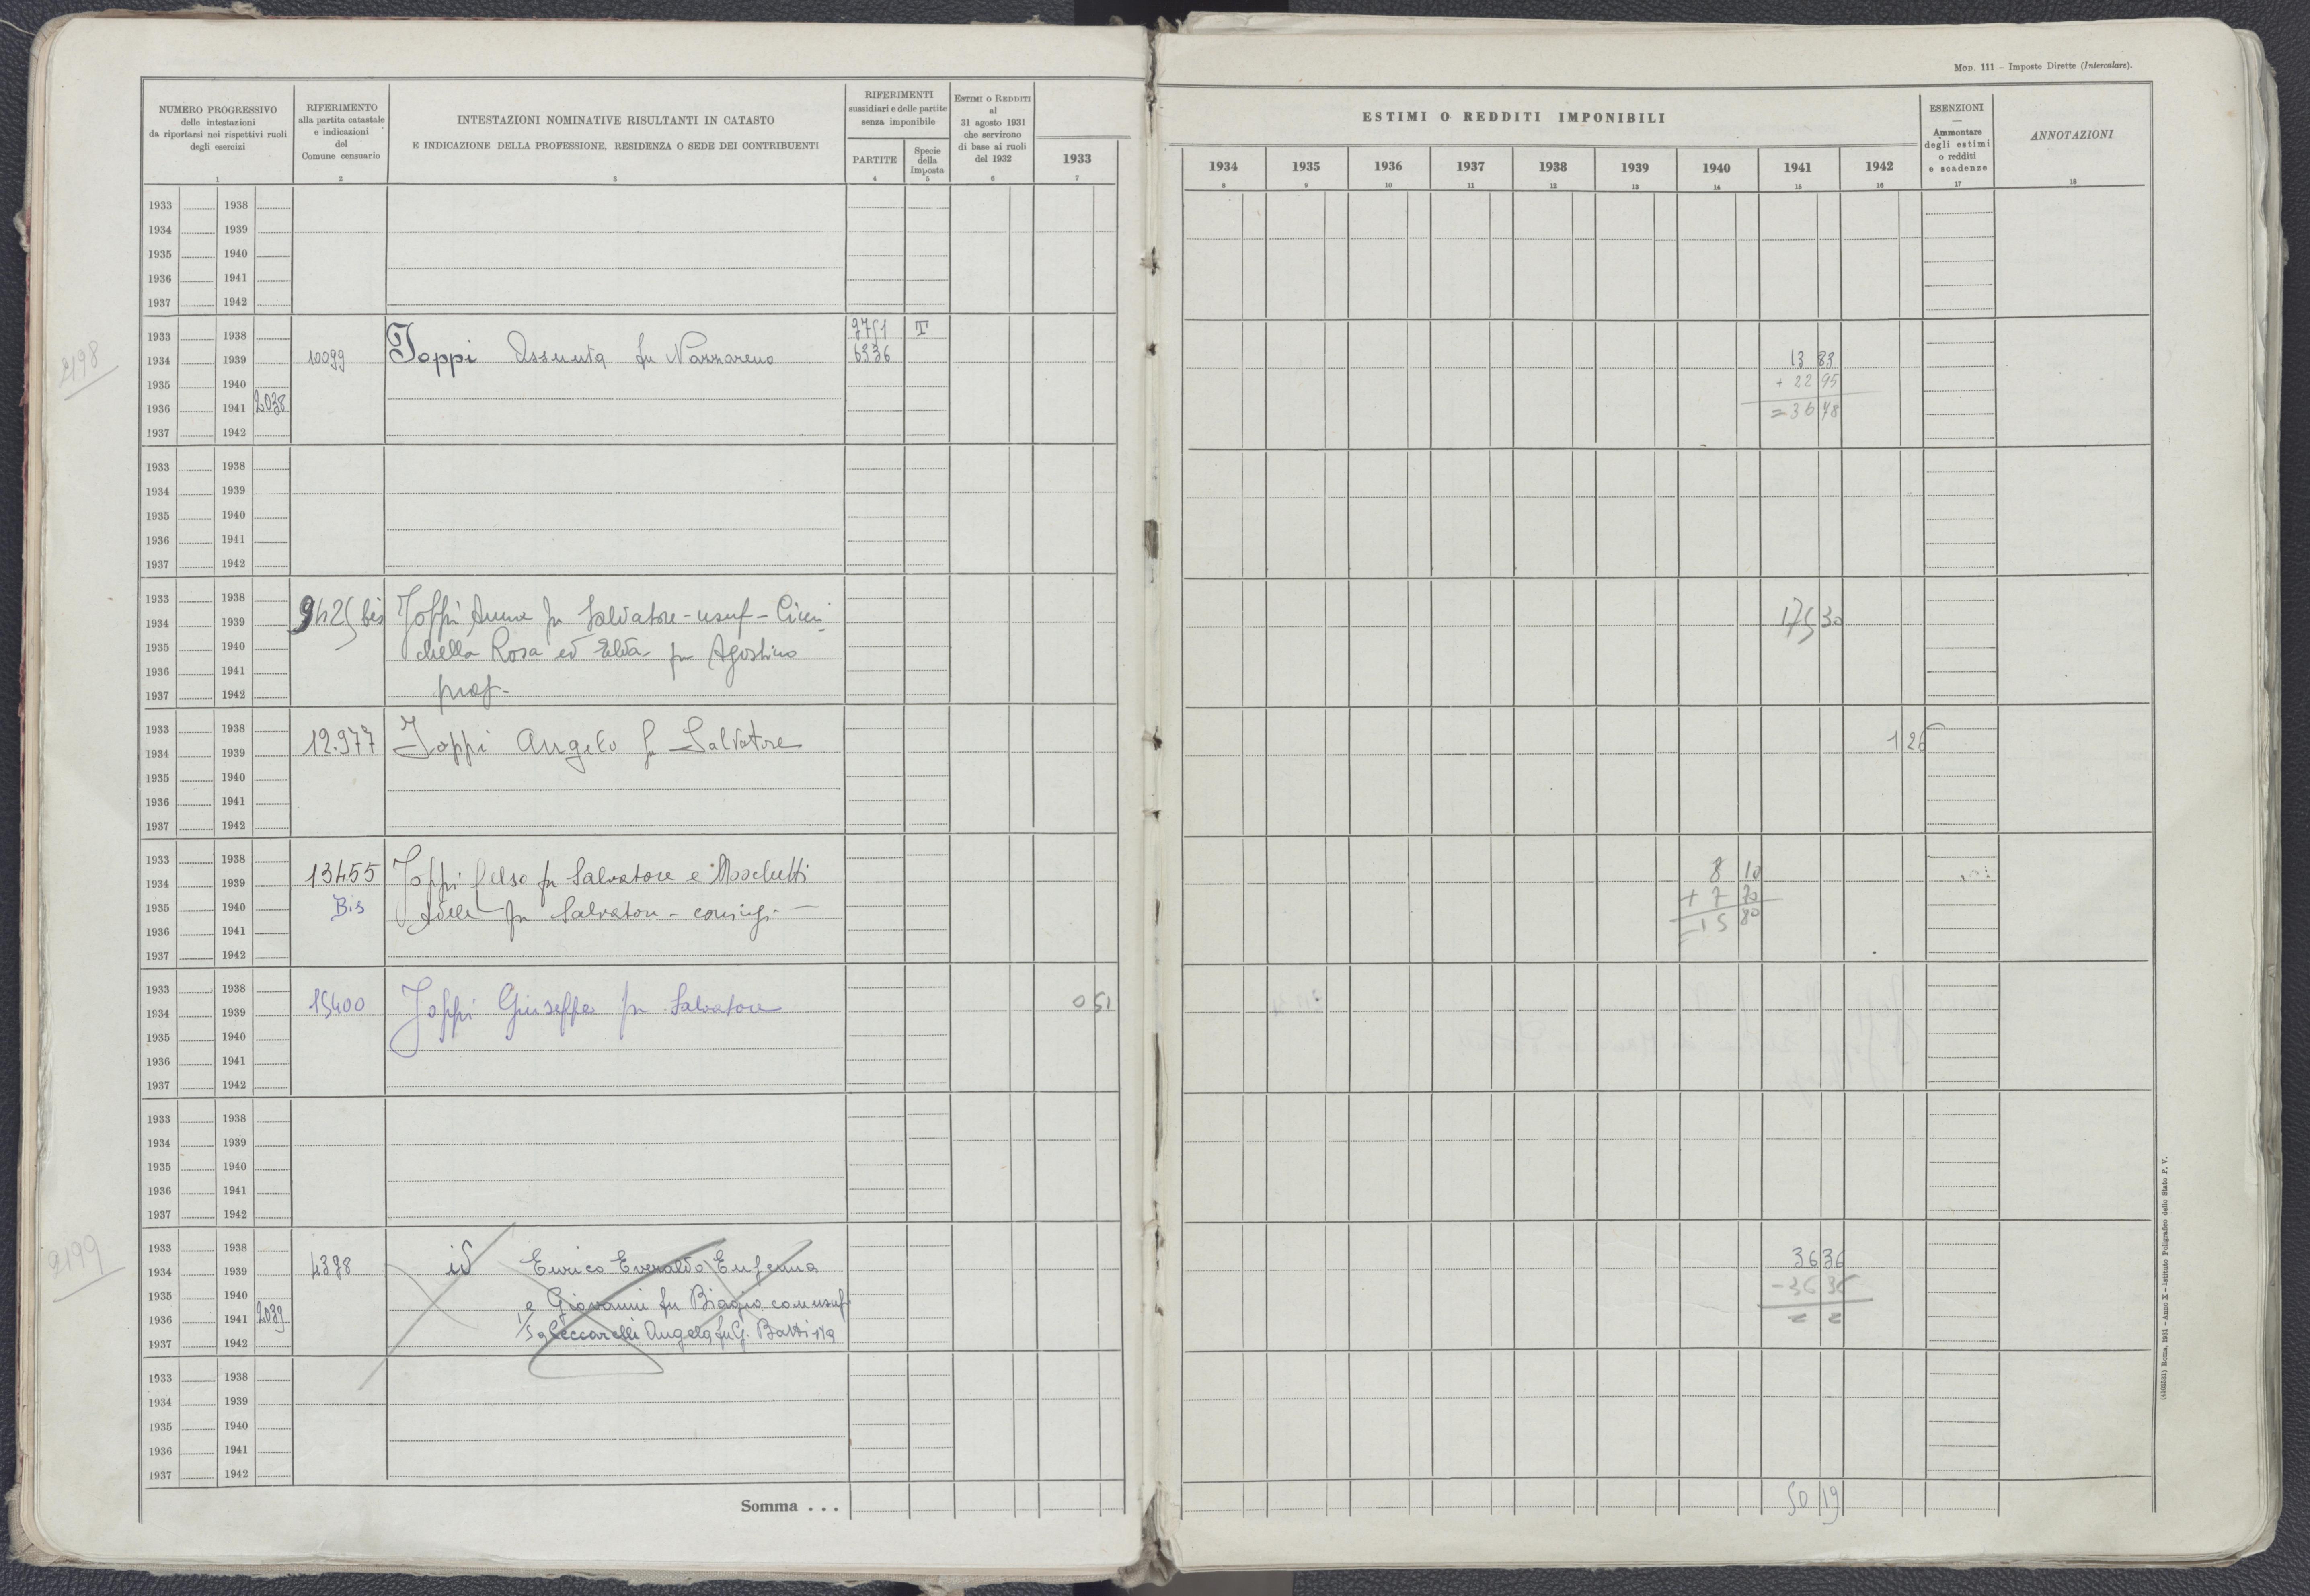 MOD. 111 – Imposte Dirette (Intercalare).
NUMERO PROGRESSIVO
delle intestazioni
da riportarsi nei rispettivi ruoli
degli esercizi
1
RIFERIMENTO
alla partita catastale
e indicazioni
del
Comune censuario
2
INTESTAZIONI NOMINATIVE RISULTANTI IN CATASTO
E INDICAZIONE DELLA PROFESSIONE, RESIDENZA O SEDE DEI CONTRIBUENTI
3
RIFERIMENTI
sussidiari e delle partite
senza imponibile
PARTITE
4
Specie
della
imposta
5
ESTIMI O REDDITI
al
31 agosto 1931
che servirono
di base ai ruoli
del 1932
6
1933
7
ESTIMI O REDDITI IMPONIBILI
1934 1935 1936 1937 1938 1939 1940 1941 1942
8 9 10 11 12 13 14 15 16
ESENZIONI
—
Ammontare
degli estimi
o redditi
e scadenze
17
ANNOTAZIONI
18
1933 1938
1934 1939
1935 1940
1936 1941
1937 1942
2198
1933 1938 T
1934 1939 10099 Joppi Assunta fu Nazzareno 6336 13 83
1935 1940 + 22 95
1936 1941 2038 = 36 78
1937 1942
1933 1938
1934 1939
1935 1940
1936 1941
1937 1942
1933 1938
1934 1939 9425 bis Joppi Anna fu Salvatore - usuf - Cicci
1935 1940 chella Rosa ed Elda fu Agostino
1936 1941
1937 1942 prop.
175 30
1933 1938
1934 1939 12.977 Joppi Angelo fu Salvatore 1 26
1935 1940
1936 1941
1937 1942
1933 1938
1934 1939 13455 Joppi Celso fu Salvatore e Moschetti 8 10
1935 1940 Bis Adele fu Salvatore - coniugi + 7 70
1936 1941 = 15 80
1937 1942
1933 1938
1934 1939 15400 Joppi Giuseppe fu Salvatore 0 51
1935 1940
1936 1941
1937 1942
1933 1938
1934 1939
1935 1940
1936 1941
1937 1942
2199
1933 1938
1934 1939 4398 id Enrico Everaldo Eufemia 36 36
1935 1940 e Giovanni fu Biagio con usuf - 36 36
1936 1941 2039 = =
1937 1942 Ceccarelli Angela fu G. Battista
1933 1938
1934 1939
1935 1940
1936 1941
1937 1942
Somma . . . 50 19
(4102331) Roma, 1931 – Anno X – Istituto Poligrafico dello Stato P. V.